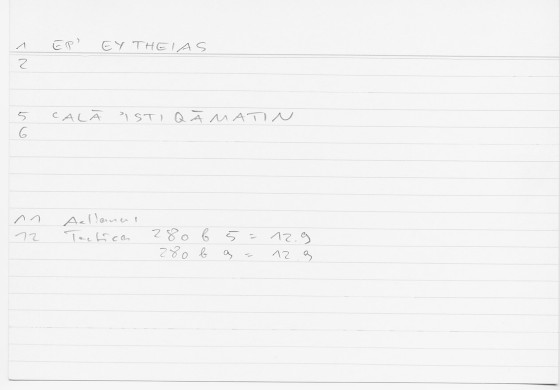 1 EP' EYTHEIAS
2
5 CALĀ 'ISTIQĀMATIN
6
11 Aelianus
12 Tactica 280 b 5 = 12.9
280 b 9 = 12 9